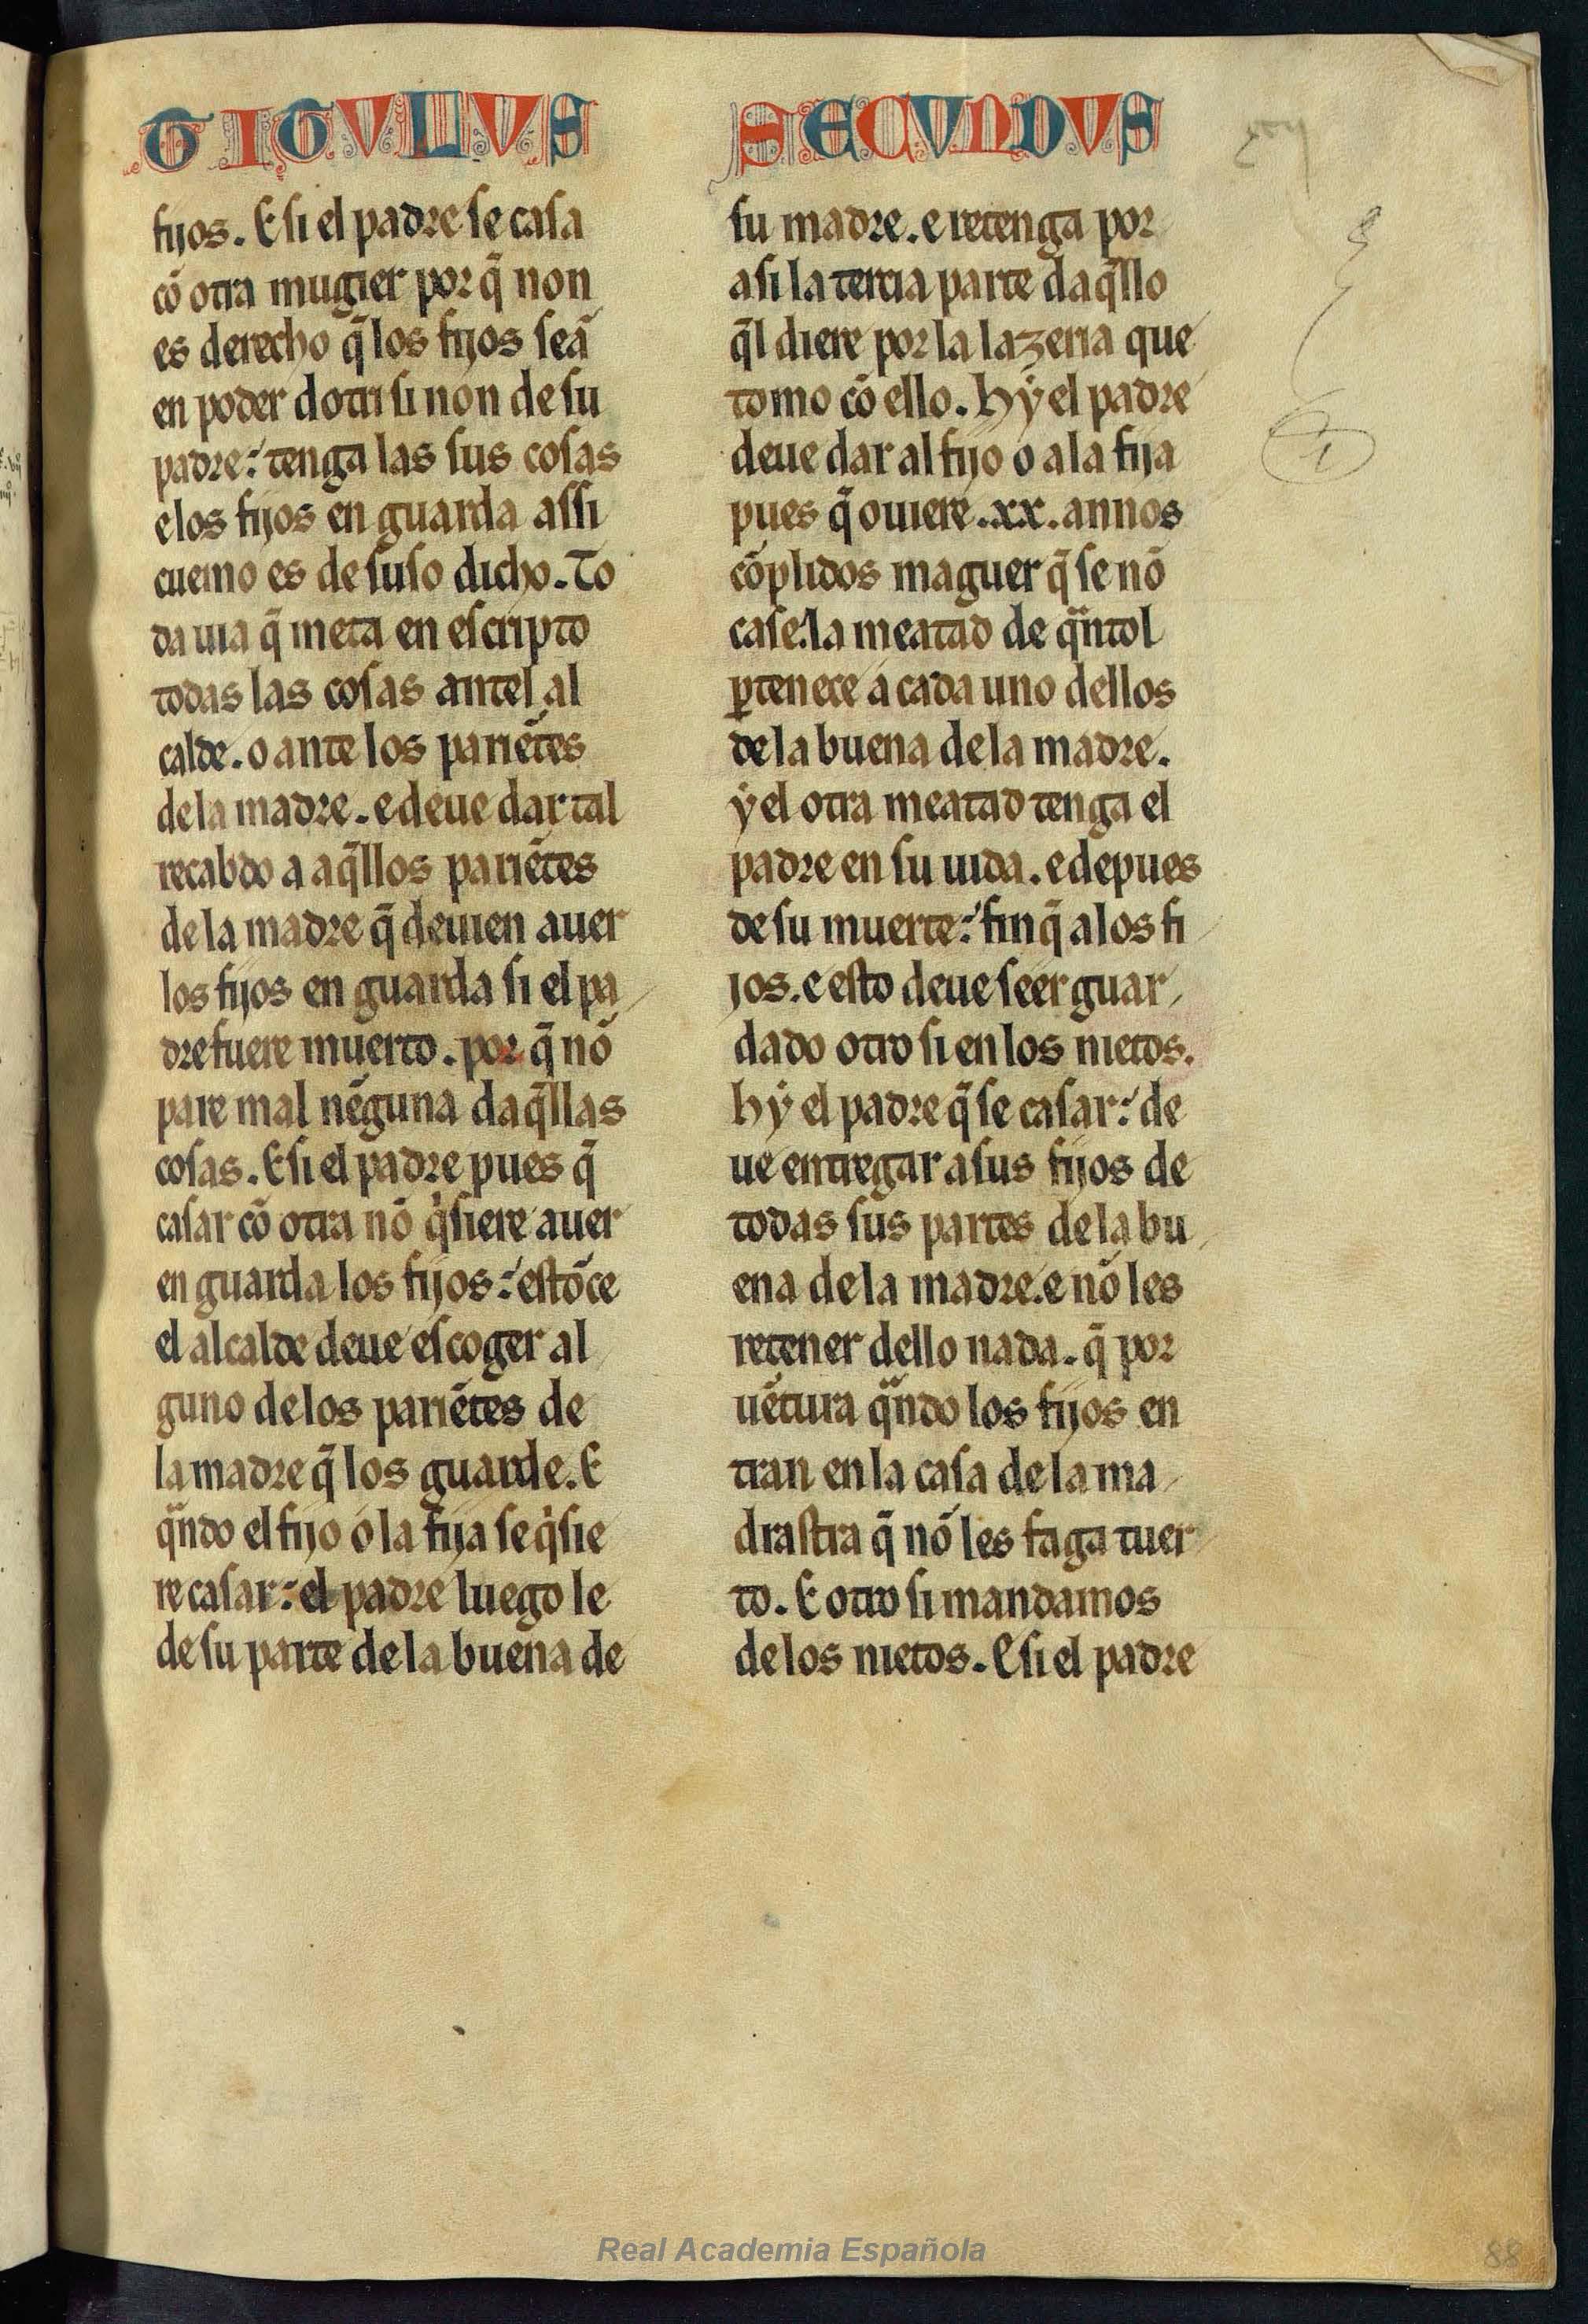 TITULUS SECUNDUS
fijos. E si el padre se casa
cõ otra mugier por q̃ non
es derecho q̃ los fijos seã
en poder dotri si non de su
padre: tenga las sus cosas
e los fijos en guarda assi
cuemo es de suso dicho. To
da uia q̃ meta en escripto
todas las cosas antel al
calde. o ante los pariẽtes
de la madre. e deue dar tal
recabdo a aq̃llos pariẽtes
de la madre q̃ deuien auer
los fijos en guarda si el pa
dre fuere muerto. por q̃ nõ
pare mal nẽguna daq̃llas
cosas. E si el padre pues q̃
casar cõ otra nõ q̉siere auer
en guarda los fijos: estõce
el alcalde deue escoger al
guno de los pariẽtes de
la madre q̃ los guarde. E
qᷓndo el fijo o la fija se q̉sie
re casar: el padre luego le
de su parte de la buena de
su madre. e retenga por
asi la tercia parte daq̃llo
q̃l diere por la lazeria que
tomo cõ ello. hẏ el padre
deue dar al fijo o a la fija
pues q̃ ouiere .xx. annos
cõplidos maguer q̃ se nõ
case. la meatad de qᷓntol
ꝑtenece a cada uno dellos
de la buena de la madre.
ẏ el otra meatad tenga el
padre en su uida. e depues
de su muerte: finq̃ a los fi
jos. e esto deue seer guar
dado otro si en los nietos.
hẏ el padre q̃ se casar: de
ue entregar a sus fijos de
todas sus partes de la bu
ena de la madre. e nõ les
retener dello nada. q̃ por
uẽtura qᷓndo los fijos en
tran en la casa de la ma
drastra q̃ nõ les faga tuer
to. E otro si mandamos
de los nietos. E si el padre
Real Academia Española
88